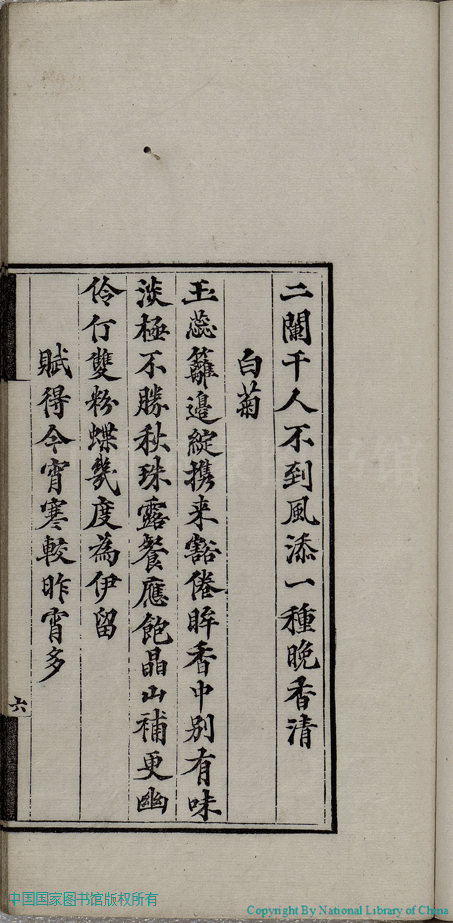 二闌干人不到風添一種晚香清
白菊
玉蕊籬邊綻携来豁倦眸香中別有味
淡極不勝秋珠露餐應飽晶山補更幽
伶仃雙粉蝶幾度為伊留
賦得今宵寒較昨宵多
六
中国国家图书馆版权所有
Copyright By National Library of China